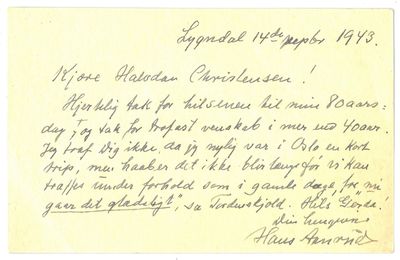 Lyngdal 14de septbr 1943.
Kjære Halvdan Christensen!
Hjertelig tak for hilsenen til min 80aars:
dag, og tak for trofast venskab i mer end 40 aar.
Jeg traf Dig ikke, da jeg nylig var i Oslo en kort
trip, men haaber det ikke blir længe før vi kan
træffes under forhold som i gamle dage, for "nu
gaar det gladeligt", sa Tordenskjold. Hils Gerda!
Din hengivne
Hans Aanrud